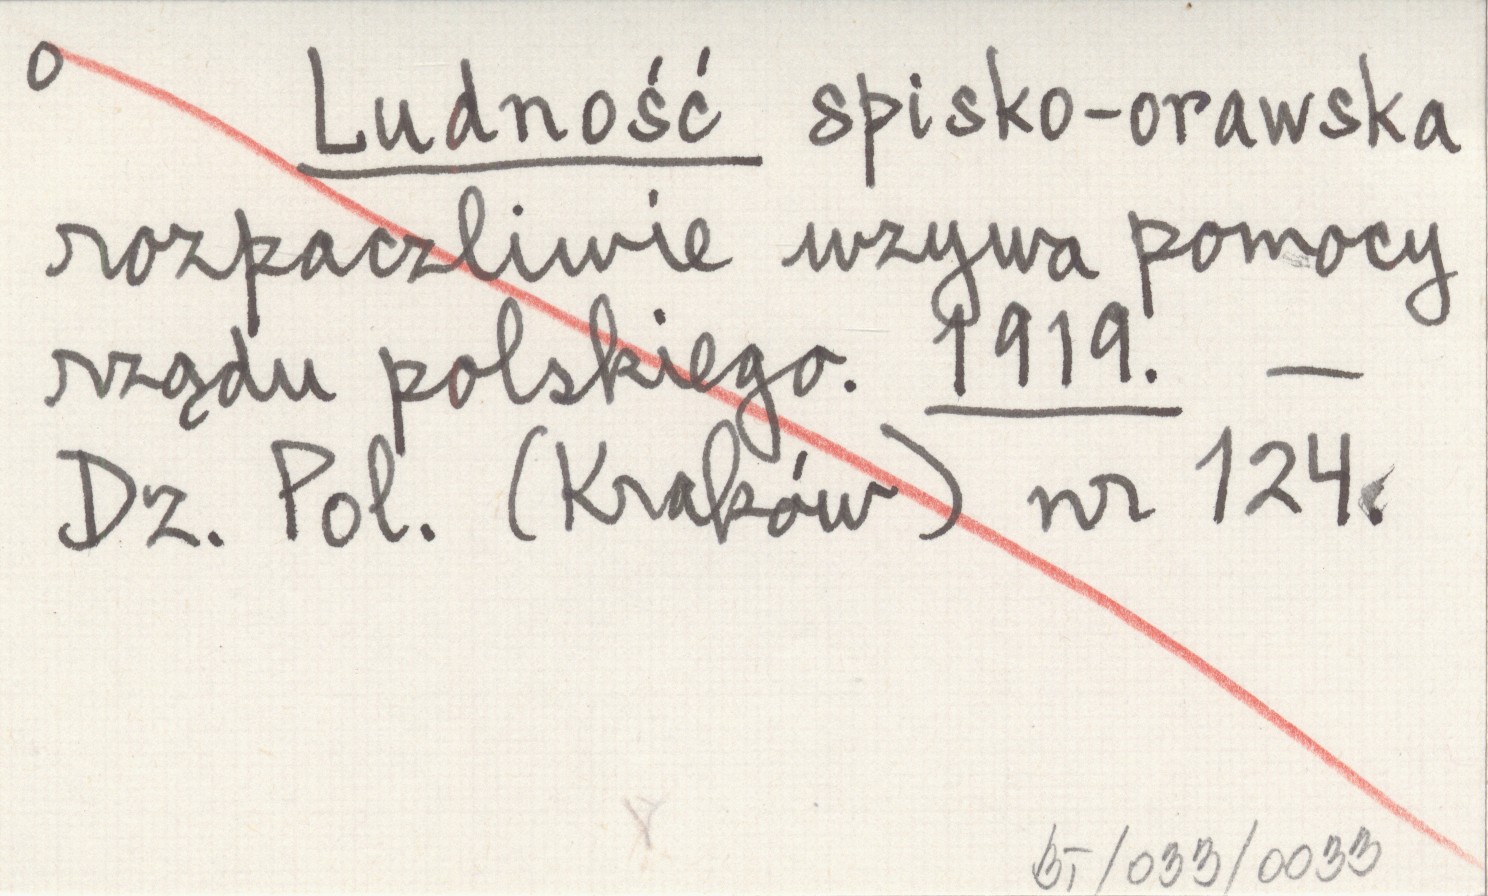 o Ludność spisko-orawska
rozpaczliwie wzywa pomocy
rządu polskiego. 1919. —
Dz. Pol. (Kraków) nr 124.
BT/033/0033